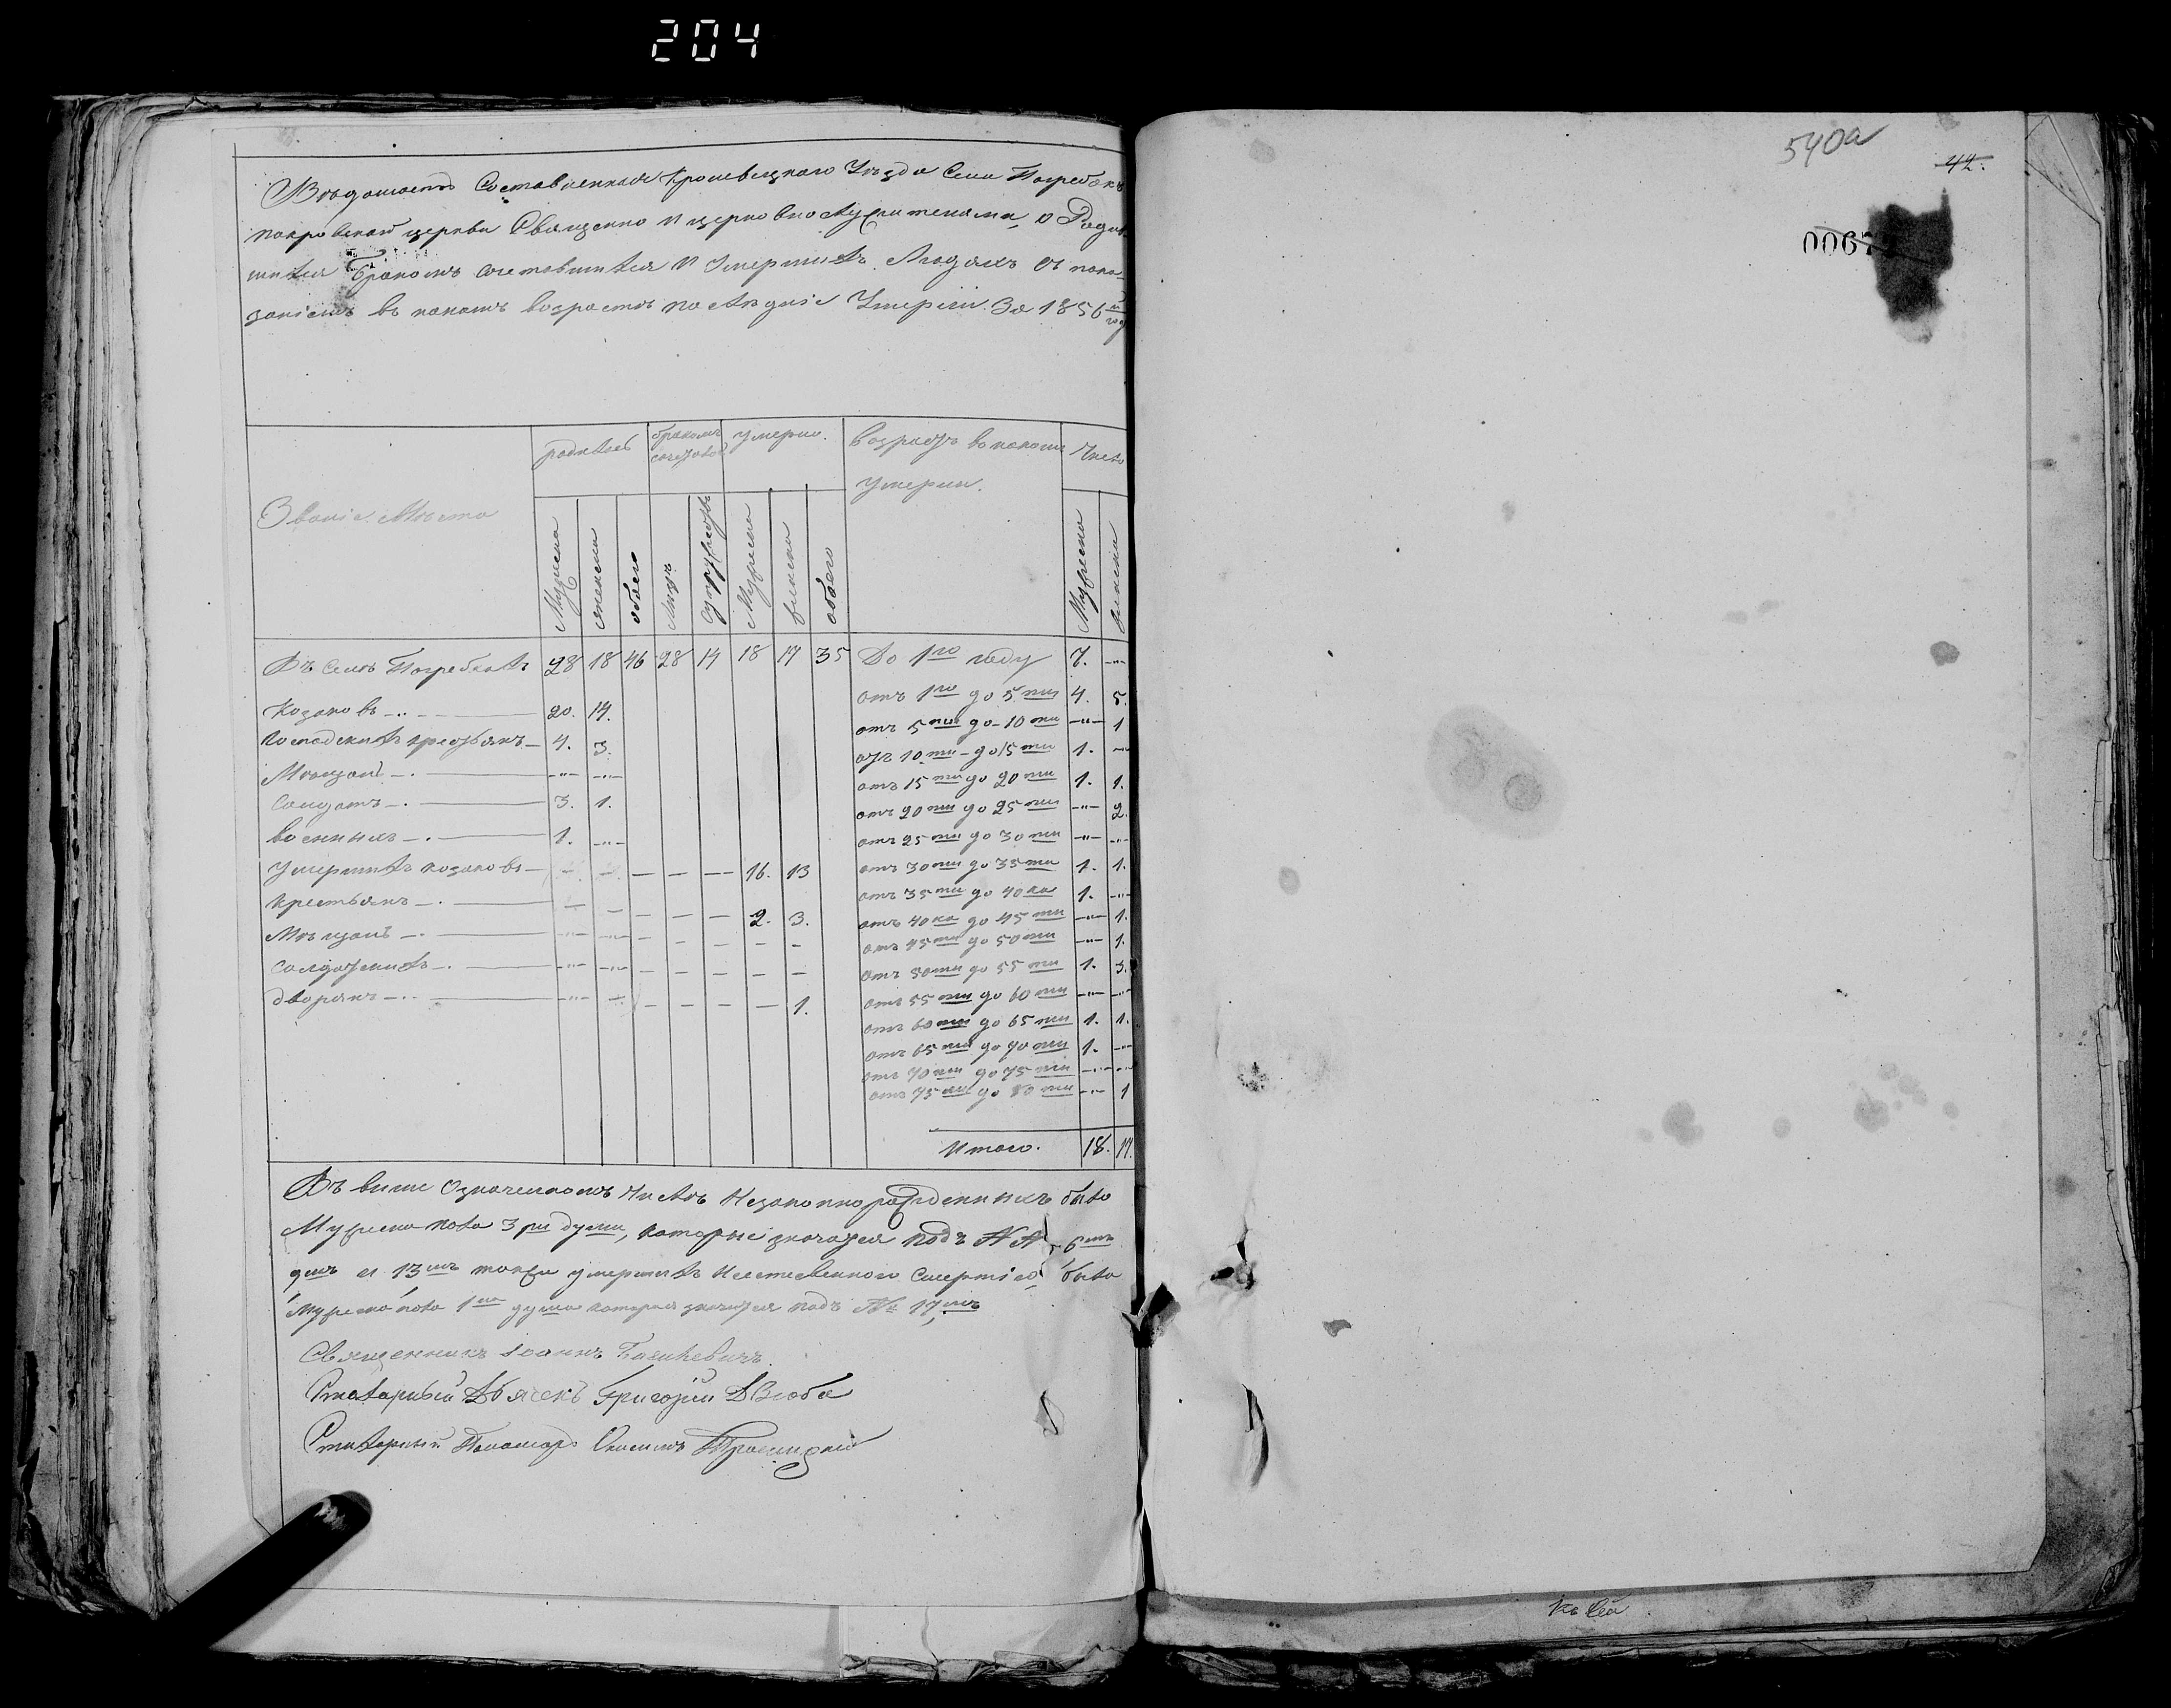 204
Вѣдомость Составленная Кролевецкого Уѣзда Села Погребокъ
покровской церкви Священно и церковно служителями, о Родив-
шихся бракомъ сочетавшихся и Умершихъ Людяхъ съ пока-
заніемъ въ какомъ возрастѣ послѣдніе Умерли. За 1856 й год
Званіе Мѣста
родилось
бракомъ сочеталось
умерло.
Возрастъ въ какомъ умерли.
Число
Мужеска
женска
обоего
лицъ
супружствъ
Мужеска
женска
обоего
Мужеска
женска
Въ Селѣ Погребкахъ 28 18 46 28 14 18 17 35 До 1го году 7. -"-
Козаковъ -"- 20. 14. отъ 1го до 5ти 4. 5.
Господскихъ крестьянъ 4. 3. отъ 5ти до 10ти -"- 1
Мѣщанъ -"- -"- отъ 10ти до 15ти 1. -"-
Солдатъ 3. 1. отъ 15ти до 20ти 1. 1.
военныхъ 1. -"- отъ 20ти до 25ти -"- 2.
отъ 25ти до 30ти -"- -"-
Умершихъ козаковъ — — — 16. 13 отъ 30ти до 35ти 1. 1.
крестьянъ — — — — — 2. 3. отъ 35ти до 40ка 1. -"-
отъ 40ка до 45ти -"- 1.
Мѣщанъ -"- -"- — — — — — отъ 45ти до 50ти -"- 1.
Солдатскихъ -"- -"- — — — — — отъ 50ти до 55ти 1. 3.
дворянъ -"- — — — — 1. отъ 55ти до 60ти -"- -"-
отъ 60ти до 65ти 1. 1.
отъ 65ти до 70ти 1. -"-
отъ 70ти до 75ти -"- -"-
отъ 75ти до 80ти -"- 1
Итого. 18. 17.
Въ выше Означенномъ Числѣ Незаконнорожденныхъ было
Мужеска пола 3ри души, которые значатся подъ №№ 6мъ
9мъ и 13мъ также умершихъ Неестественною Смертію было
Мужеска пола 1на душа которая значится подъ № 17,мъ
Священникъ Іоаннъ
Стихарный Дьячекъ Григорій Дзюба
Стихарный Пономарь Троицкій
540а
42.
0067